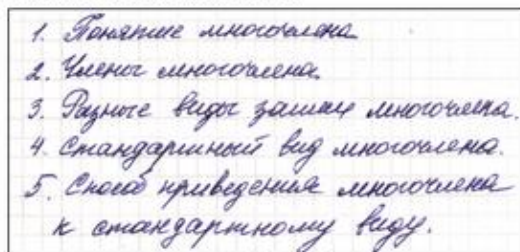 1. Понятие многочлена
2. Члены многочлена.
3. Разные виды записи многочлена.
4. Стандартный вид многочлена.
5. Способ приведения многочлена
к стандартному виду.